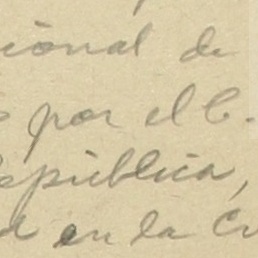 cional de
por el C.
República,
en la